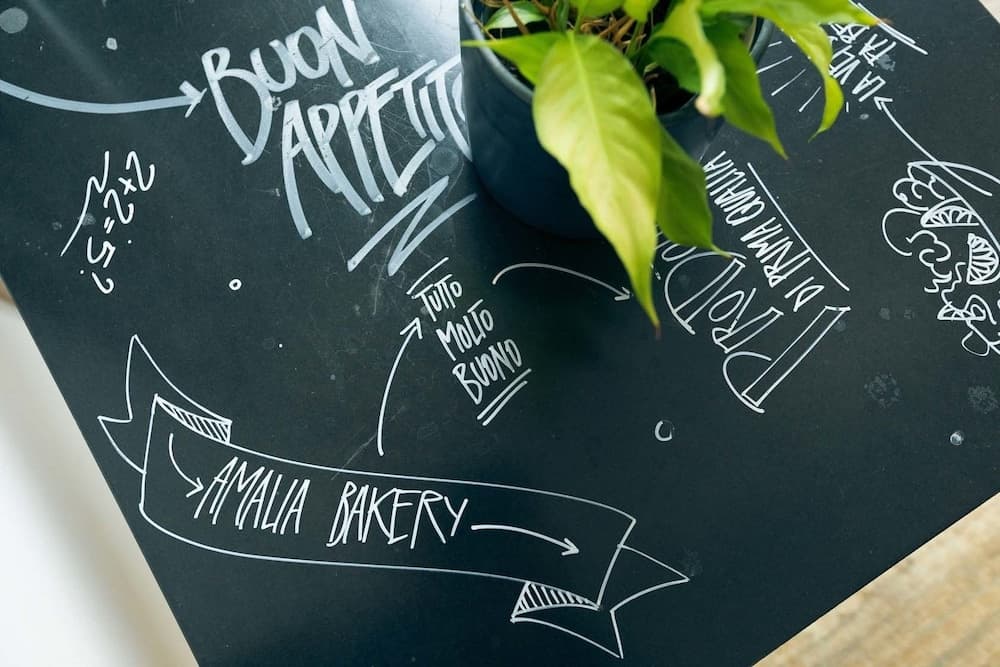 BUON
APPETITO
2x2=5?
TUTTO
MOLTO
BUONO
DI PRIMA QUALITA
LA
FA
AMALIA BAKERY